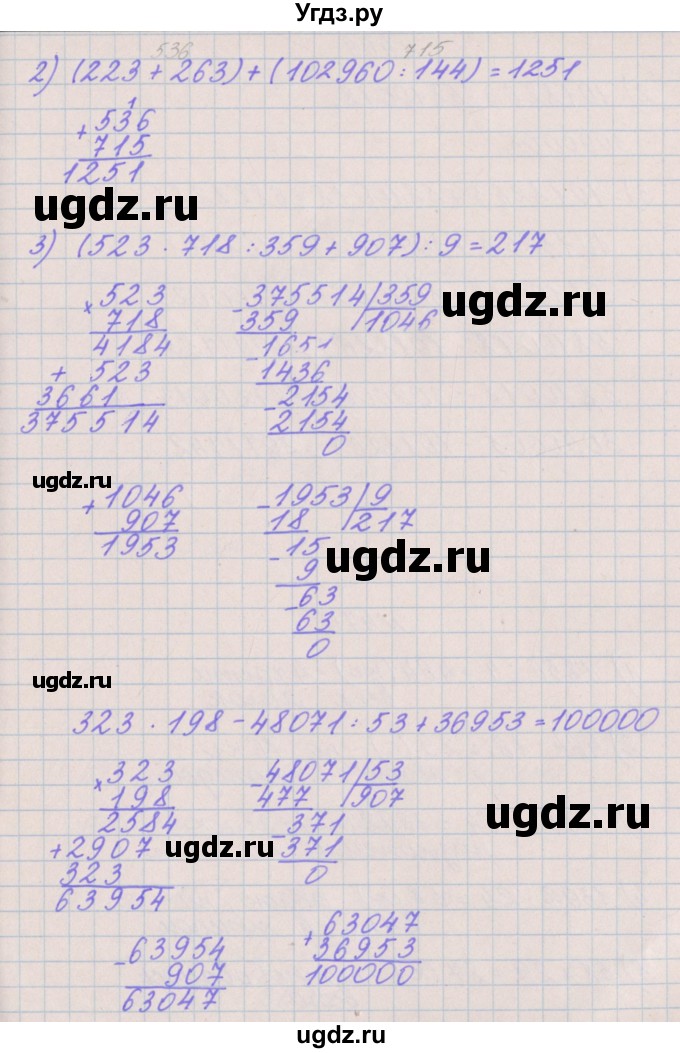 Угдз.ру
536 715
2) (223 + 263) + (102960 : 144) = 1251
1
+ 536
715
1251
ugdz.ru
3) (523 · 718 : 359 + 907) : 9 = 217
× 523
718
4184
+ 523
3661
375514
- 375514 | 359
359 1046
- 1651
1436
- 2154
2154
0
ugdz.ru
ugdz.ru
+ 1046
907
1953
- 1953 | 9
18 217
- 15
9
- 63
63
0
ugdz.ru
ugdz.ru
323 · 198 - 48071 : 53 + 36953 = 100000
× 323
198
2584
+ 2907
323
63954
- 48071 | 53
477 907
- 371
371
0
ugdz.ru
ugdz.ru
- 63954
907
63047
+ 63047
36953
100000
ugdz.ru